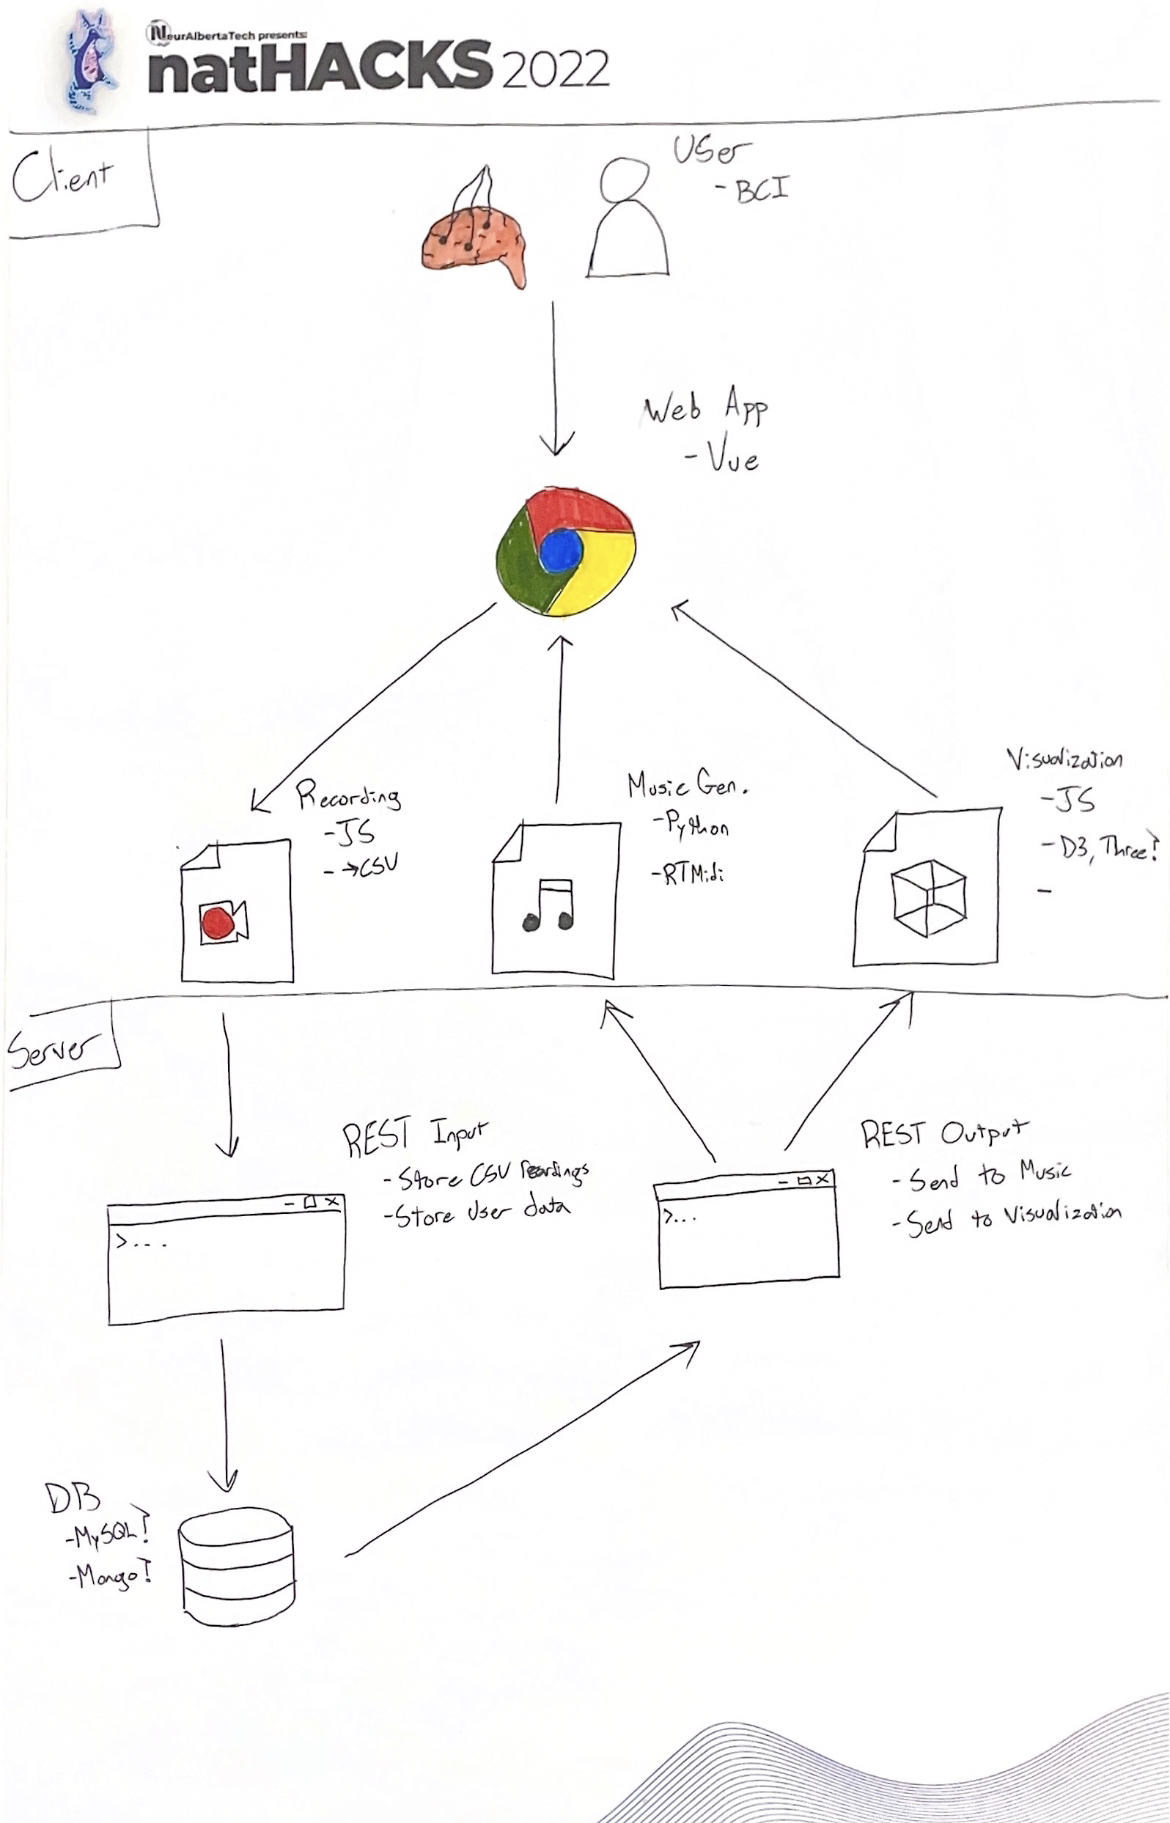 NeurAlbertaTech presents:
natHACKS 2022
Client
User
- BCI
Web App
- Vue
Recording
- JS
- → CSV
Music Gen.
- Python
- RTMidi
Visualization
- JS
- D3, Three?
-
Server
REST Input
- Store CSV recordings
- Store User data
>...
REST Output
- Send to Music
- Send to Visualization
>...
DB
- MySQL?
- Mongo?